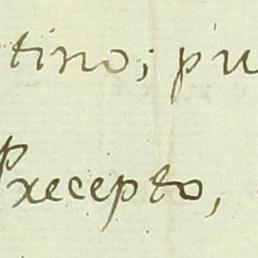 tino; pu
Precepto,